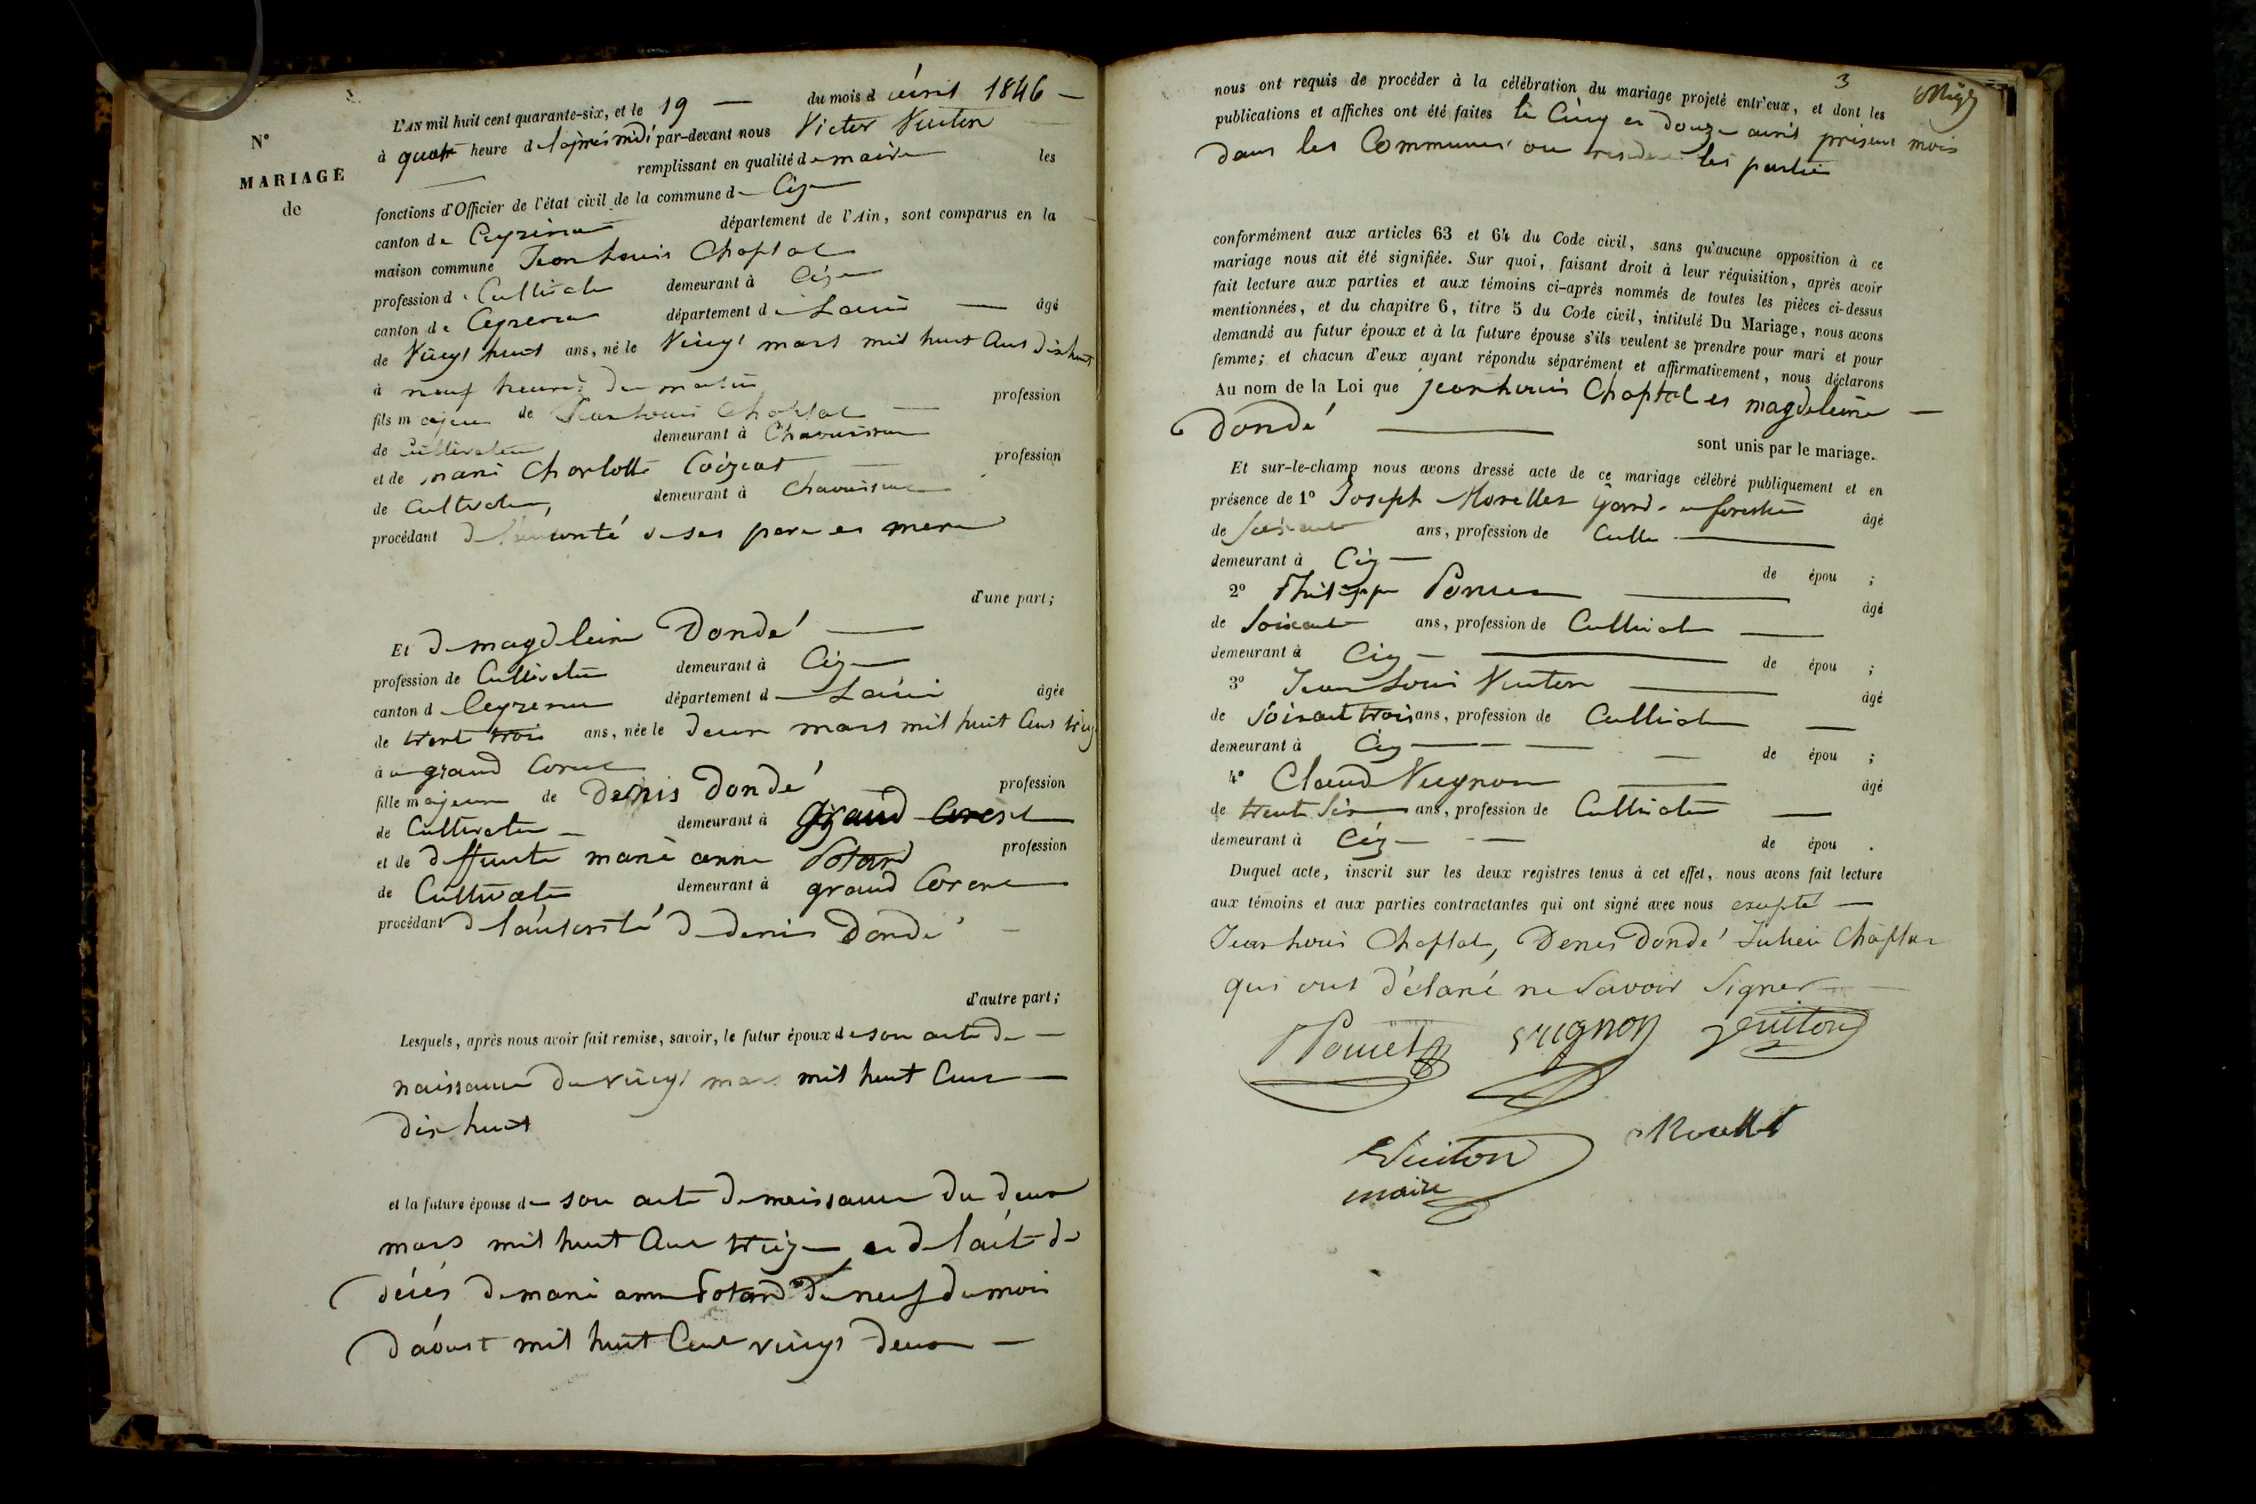 N°
MARIAGE
de
L'AN mil huit cent quarante-six, et le 19 — du mois d avril 1846 —
à quatre heure de l'après midi par-devant nous Victor Vuiton
remplissant en qualité de maire les
fonctions d'Officier de l'état civil de la commune de Cize
canton de Ceyzeriat département de l'Ain, sont comparus en la
maison commune Jean Louis Chaptal
profession de Cultivateur demeurant à Cize
canton de Ceyzeriat département de Lain — âgé
de Vingt huit ans, né le Vingt mars mil huit Cent dix huit
à neuf heures du matin
fils majeur de Jean Louis Chaptal — profession
de Cultivateur demeurant à
et de marie Charlotte profession
de Cultivateur, demeurant à
procédant de l'autorité de ses pere et mere
d'une part;
Et de magdeleine Dondé —
profession de Cultivateur demeurant à Cize
canton d Ceyzeriat département de Lain âgée
de trent trois ans, née le deux mars mil huit Cent treiz
à a grand Corent
fille majeure de Denis Dondé profession
de Cultivateur — demeurant à grand Corent
et de deffunte marie anne Potard profession
de Cultivateur demeurant à grand Corent
procédant de l'autorité de denis Dondé —
d'autre part;
Lesquels, après nous avoir fait remise, savoir, le futur époux de son acte de —
naissance du vingt mars mil huit Cent —
dix huit
et la future épouse de son acte de naissance du deux
mars mil huit Cent treize et de l'acte de
décès de marie anne Potard du neuf du mois
d'aoust mil huit Cent vingt deux —
3
nous ont requis de procéder à la célébration du mariage projeté entr'eux, et dont les
publications et affiches ont été faites le Cinq et Douze avril présent mois
dans les Communes ou resident les partie
conformément aux articles 63 et 64 du Code civil, sans qu'aucune opposition à ce
mariage nous ait été signifiée. Sur quoi, faisant droit à leur réquisition, après avoir
fait lecture aux parties et aux témoins ci-après nommés de toutes les pièces ci-dessus
mentionnées, et du chapitre 6, titre 5 du Code civil, intitulé Du Mariage, nous avons
demandé au futur époux et à la future épouse s'ils veulent se prendre pour mari et pour
femme; et chacun d'eux ayant répondu séparément et affirmativement, nous déclarons
Au nom de la Loi que jean Louis Chaptal et magdeleine —
Dondé — sont unis par le mariage.
Et sur-le-champ nous avons dressé acte de ce mariage célébré publiquement et en
présence de 1° Joseph Morellet garde forestier âgé
de Soixante ans, profession de Culti —
demeurant à Cize — de épou ;
2° Philippe — âgé
de Soixante ans, profession de Cultivateur —
demeurant à Cize — de épou ;
3° Jean Louis Vuiton — âgé
de Soixante trois ans, profession de Cultivateur —
demeurant à Cize — de épou ;
4° Claude Vugnon — âgé
de trente Six ans, profession de Cultivateur —
demeurant à Cize — de épou .
Duquel acte, inscrit sur les deux registres tenus à cet effet, nous avons fait lecture
aux témoins et aux parties contractantes qui ont signé avec nous excepté —
Jean Louis Chaptal, Denis Dondé Julien Chaptal
qui ont déclaré ne Savoir Signer —
Vugnon Vuiton
Vuiton
maire